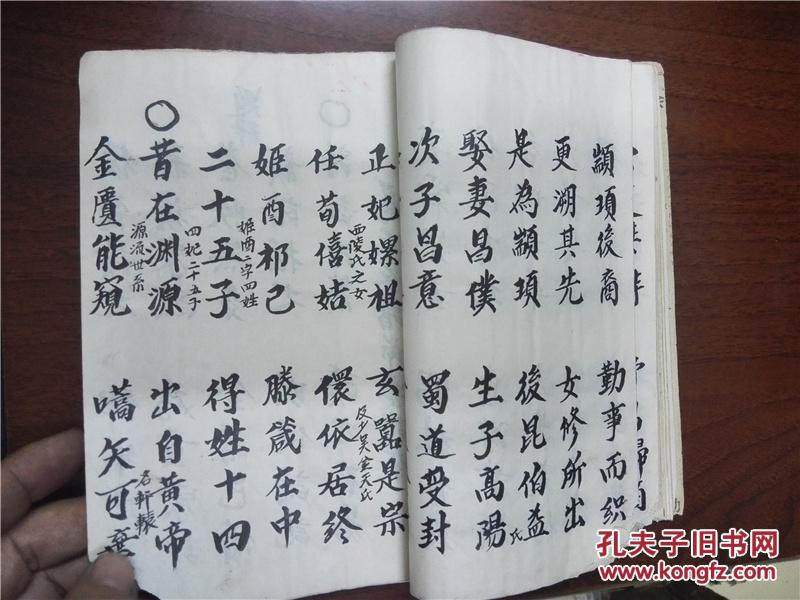 金匱能窺
嚆矢可棄
昔在渊源
源流世系
出自黄帝
名軒轅
二十五子
四妃二十五子
得姓十四
姬酉祁己
姬酉二字四姓
滕箴在中
任荀僖姞
儇依居終
正妃嫘祖
西陵氏之女
玄囂是宗
及少昊金天氏
次子昌意
蜀道受封
娶妻昌僕
生子高陽
是為顓頊
後昆伯益
氏
更溯其先
女修所出
顓頊後裔
勤事而織
孔夫子旧书网
www.kongfz.com